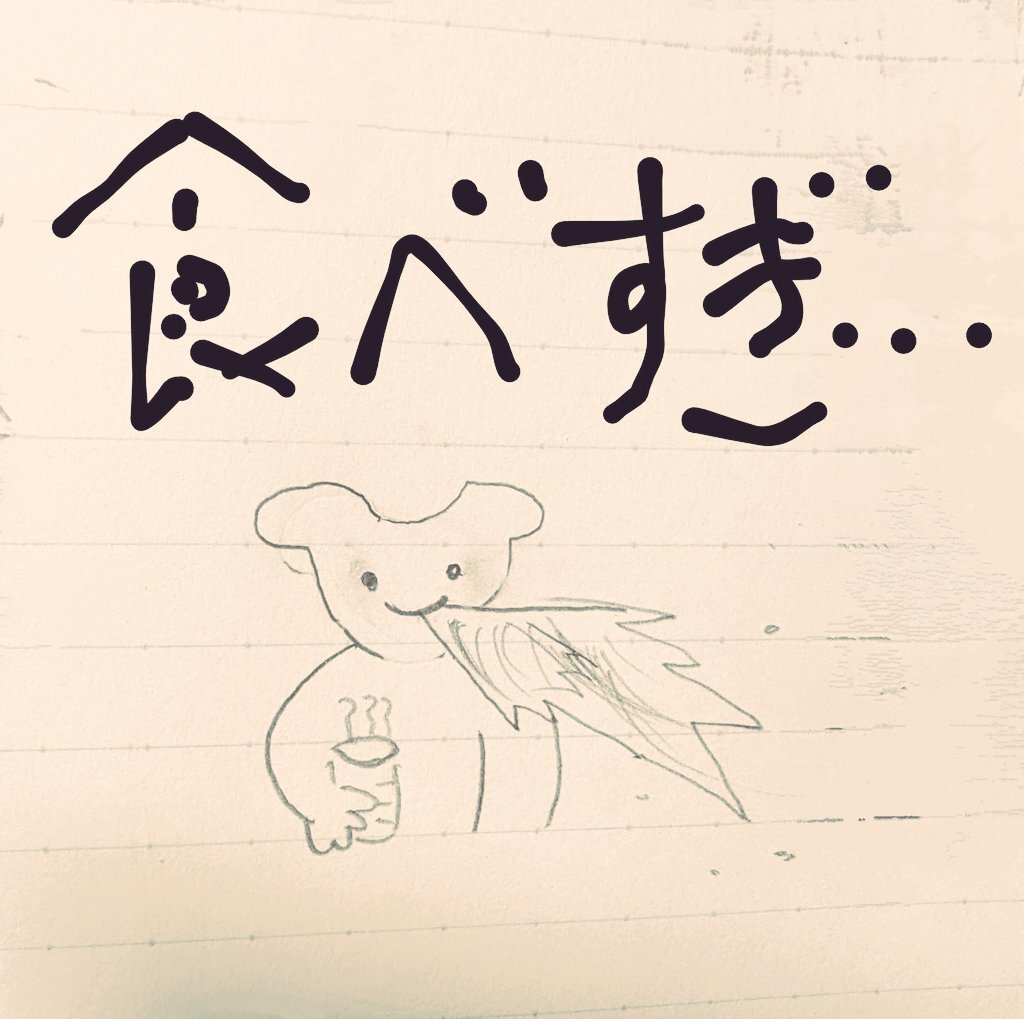 食べすぎ...